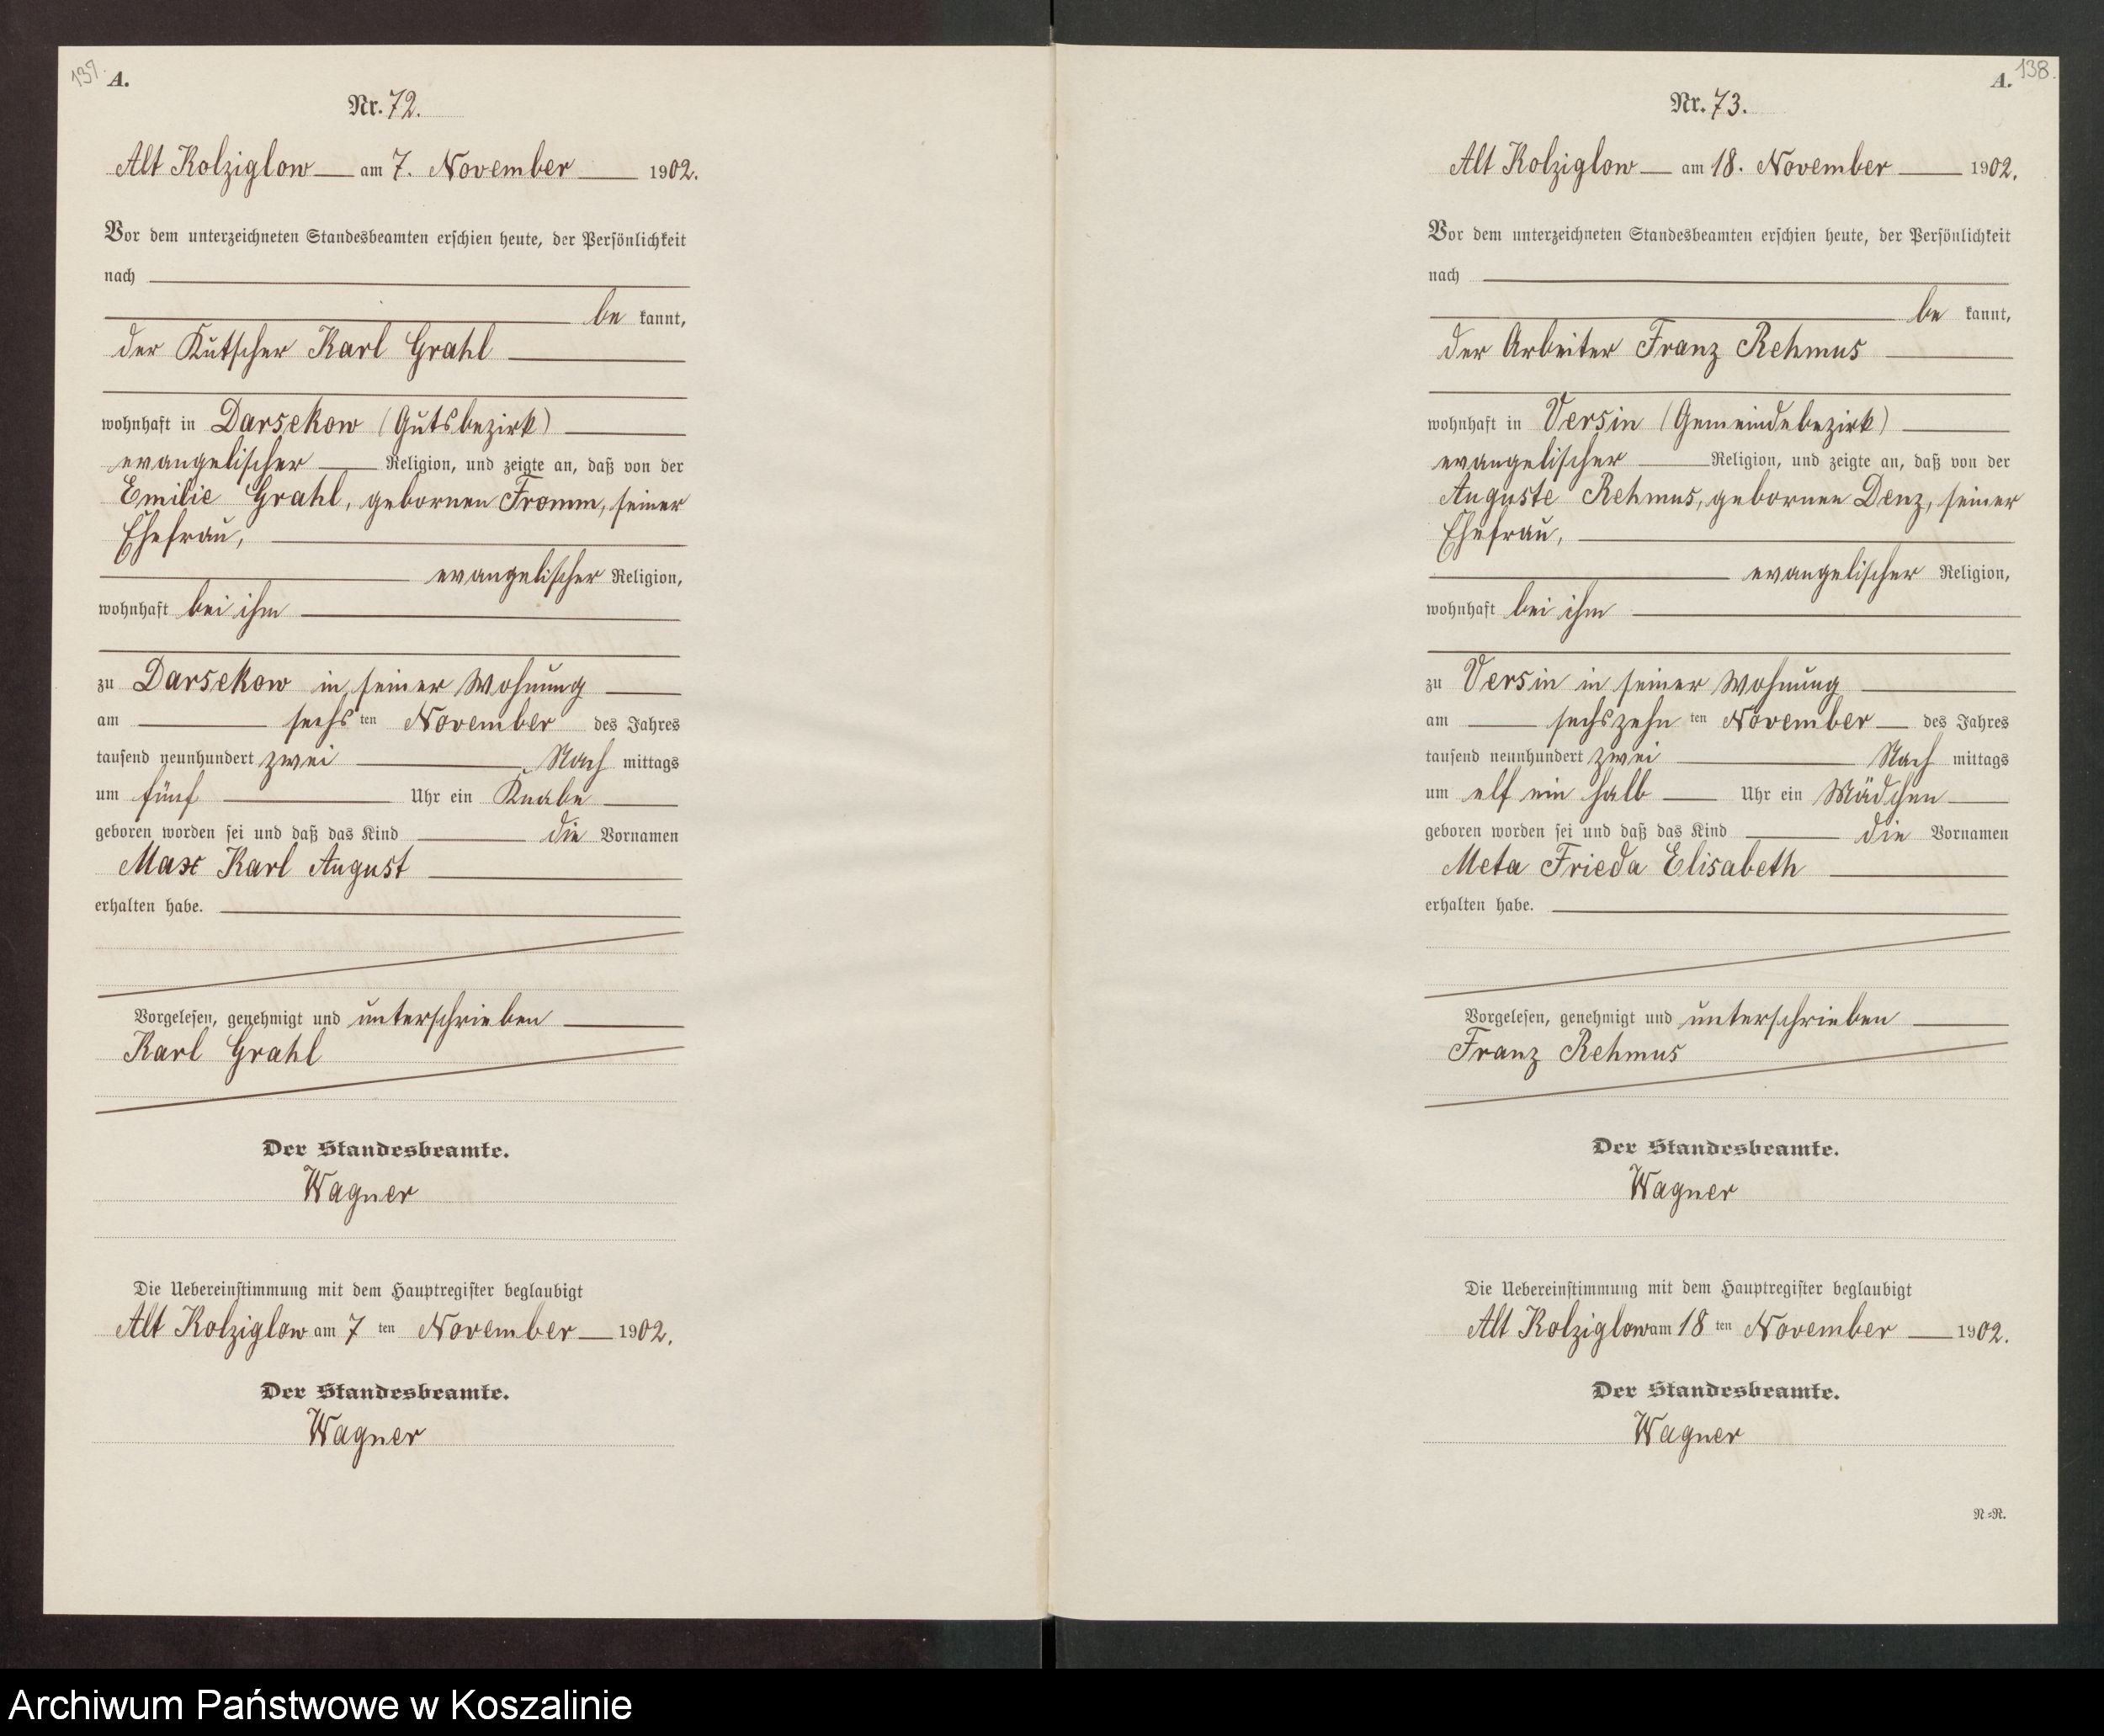 137.
A.
Nr. 72.
Alt Kolziglow am 7. November 1902.
Vor dem unterzeichneten Standesbeamten erschien heute, der Persönlichkeit
nach
be kannt,
der Kutscher Karl Grahl
wohnhaft in Darsekow (Gutsbezirk)
evangelischer Religion, und zeigte an, daß von der
Emilie Grahl, gebornen Fromm, seiner
Ehefrau,
evangelischer Religion,
wohnhaft bei ihm
zu Darsekow in seiner Wohnung
am sechs ten November des Jahres
tausend neunhundert zwei Nach mittags
um fünf Uhr ein Knabe
geboren worden sei und daß das Kind die Vornamen
Max Karl August
erhalten habe.
Vorgelesen, genehmigt und unterschrieben
Karl Grahl
Der Standesbeamte.
Wagner
Die Uebereinstimmung mit dem Hauptregister beglaubigt
Alt Kolziglow am 7 ten November 1902.
Der Standesbeamte.
Wagner
138.
A.
Nr. 73.
Alt Kolziglow am 18. November 1902.
Vor dem unterzeichneten Standesbeamten erschien heute, der Persönlichkeit
nach
be kannt,
der Arbeiter Franz Rehmus
wohnhaft in Versin (Gemeindebezirk)
evangelischer Religion, und zeigte an, daß von der
Auguste Rehmus, gebornen Denz, seiner
Ehefrau,
evangelischer Religion,
wohnhaft bei ihm
zu Versin in seiner Wohnung
am sechszehn ten November des Jahres
tausend neunhundert zwei Nach mittags
um elf ein halb Uhr ein Mädchen
geboren worden sei und daß das Kind die Vornamen
Meta Frieda Elisabeth
erhalten habe.
Vorgelesen, genehmigt und unterschrieben
Franz Rehmus
Der Standesbeamte.
Wagner
Die Uebereinstimmung mit dem Hauptregister beglaubigt
Alt Kolziglow am 18 ten November 1902.
Der Standesbeamte.
Wagner
N=R.
Archiwum Państwowe w Koszalinie